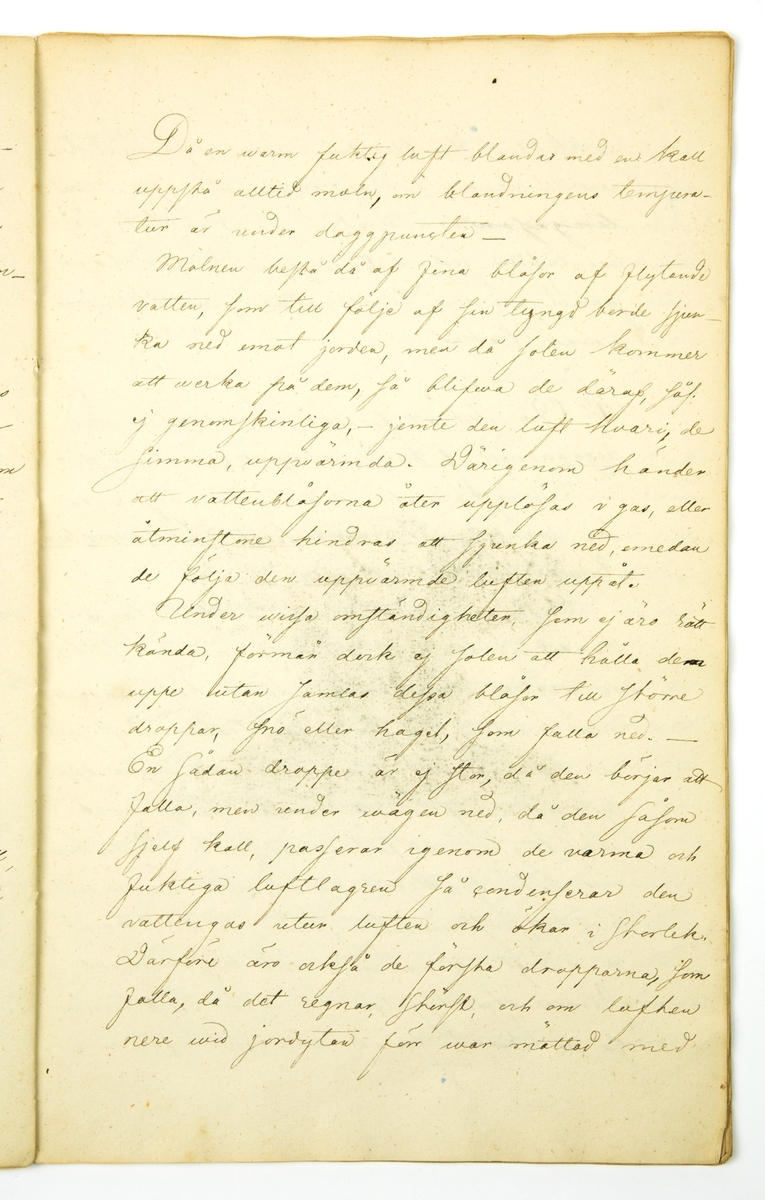 Då en warm fuktig luft blandas med en kall
uppstå alltid moln, om blandningens tempera-
tur är under daggpuncten —
Molnen bestå då af fina blåsor af flytande
vatten, som till följe af sin tyngd borde sjun-
ka ned emot jorden, men då solen kommer
att werka på dem, så blifwa de däraf, sås.
ej genomskinliga, – jemte den luft hvari, de
simma, uppvärmda. Därigenom händer
att vattenblåsorna åter upplösas i gas, eller
åtminstone hindras att sjunka ned, emedan
de följa den uppvärmde luften uppåt.
Under wissa omständigheter, som ej äro rätt
kända, förmår dock ej solen att hålla dem
uppe utan samlas dessa blåsor till större
droppar, snö eller hagel, som falla ned. —
En sådan droppe är ej stor, då den börjar att
falla, men under wägen ned, då den såsom
sjelf kall, passerar igenom de varma och
fuktiga luftlagren så condenserar den
vattengas utur luften och ökar i storlek.
Därföre äro också de första dropparna, som
falla, då det regnar, störst, och om luften
nere wid jordytan förr war mättad med